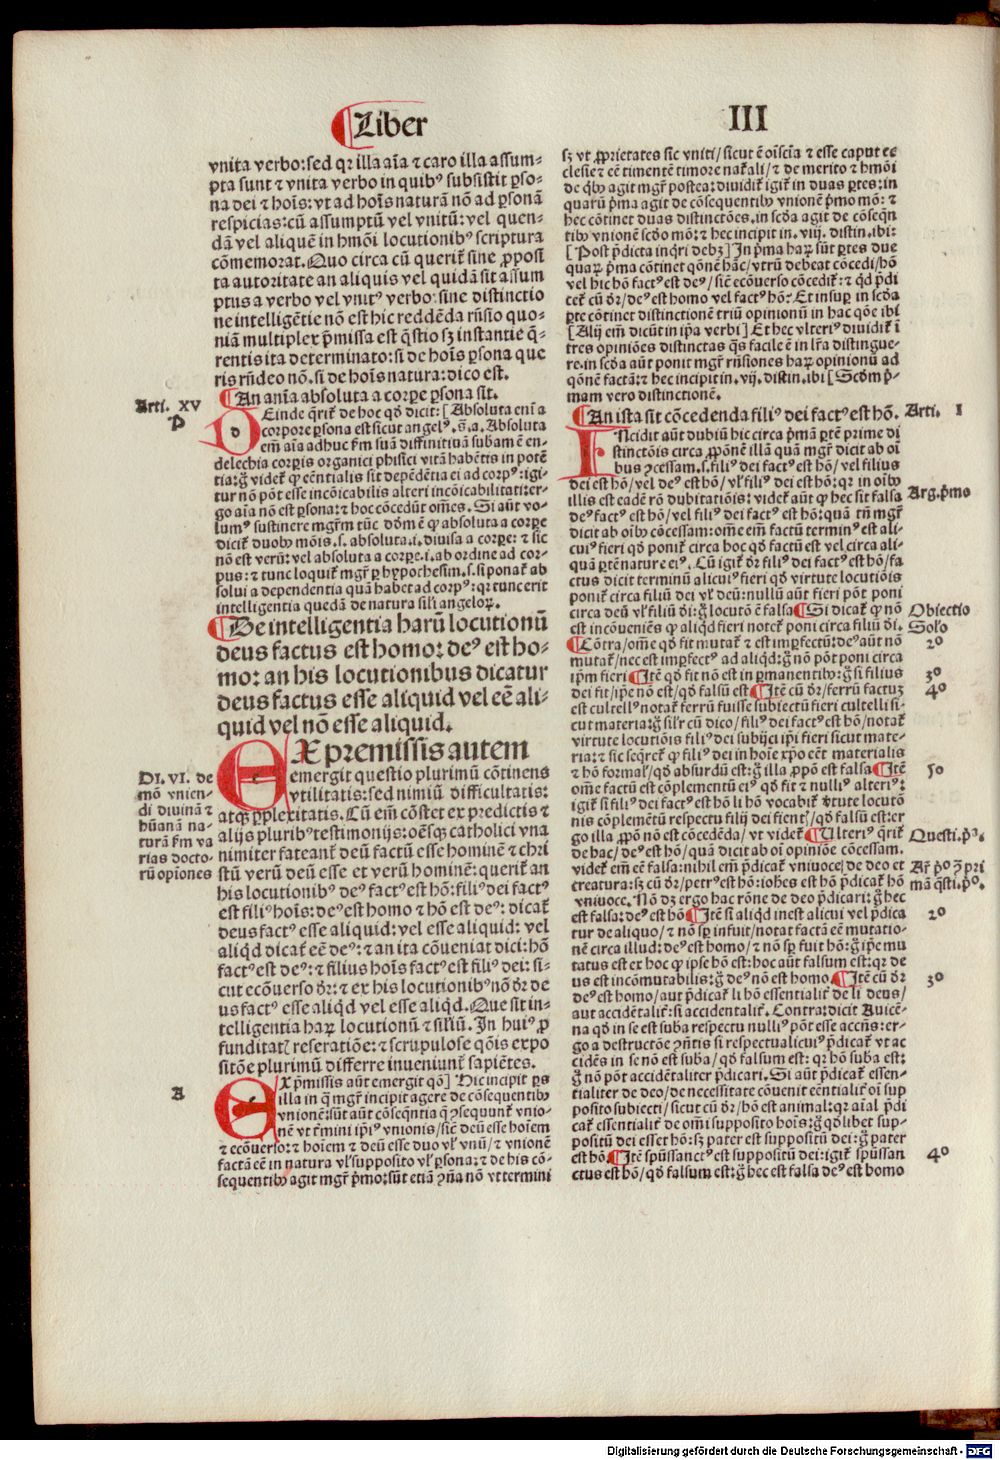 Liber
III
vnita verbo: sed qꝛ illa aĩa ⁊ caro illa assum⸗
pta sunt ⁊ vnita verbo in quibꝰ subsistit ꝑso⸗
na dei ⁊ hoĩs: vt ad hoĩs naturã nõ ad ꝑsonã
respicias: cũ assumptũ vel vnitũ: vel quen⸗
dã vel aliquẽ in hmõi locutionibꝰ scriptura
cõmemorat. Quo circa cũ querit̃ sine p̱posi
ta autoritate an aliquis vel quidã sit assum
ptus a verbo vel vnitꝰ verbo: sine distinctio
ne intelligẽtie nõ est hic reddẽda rñsio quo⸗
niã multiplex p̃missa est q̃stio sꝫ instantie q̃⸗
rentis ita determinato: si de hoĩs ꝑsona que
ris rñdeo nõ. si de hoĩs natura: dico est.
¶ An aĩa absoluta a corꝑe ꝑsona sit.
Arti. XV
P
DEinde q̃rit̃ de hoc qđ dicit: [Absoluta eni̅ a
corpore ꝑsona est sicut angelꝰ. s̃. a. Absoluta
em̃ aĩa adhuc fm suã diffinitiuã subam ẽ en⸗
delechia corꝑis organici phisici vitã habẽtis in potẽ
tia: g̃ videt̃ ꝙ eẽntialis sit depẽdẽtia ei ad corpꝰ: igi⸗
tur nõ põt esse incõicabilis alteri incõicabilitati: er⸗
go aĩa nõ est ꝑsona: ⁊ hoc cõcedũt om̃es. Si aũt vo⸗
lumꝰ sustinere mgr̃m tũc dõm ẽ ꝙ absoluta a corꝑe
dicit̃ duobꝰ mõis. s. absoluta. i. diuisa a corꝑe: ⁊ sic
nõ est verũ: vel absoluta a corꝑe. i. ab ordine ad cor⸗
pus: ⁊ tunc loquit̃ mgr̃ ꝑ hypothesim. s. si ponat̃ ab
solui a dependentia quã habet ad corpꝰ: qꝛ tunc erit
intelligentia quedã de natura sil̃i angeloꝝ.
¶ De intelligentia harũ locutionũ
deus factus est homo: deꝰ est ho⸗
mo: an his locutionibus dicatur
deus factus esse aliquid vel eẽ ali⸗
quid vel nõ esse aliquid.
EX premissis autem
emergit questio plurimũ cõtinens
vtilitatis: sed nimiũ difficultatis:
atqꝫ ꝑplexitatis. Cũ em̃ cõstet ex predictis ⁊
alijs pluribꝰ testimonijs: oẽsqꝫ catholici vna
nimiter fateant̃ deũ factũ esse hominẽ ⁊ chri
stũ verũ deũ esse et verũ hominẽ: querit̃ an
his locutionibꝰ deꝰ factꝰ est hõ: filiꝰ dei factꝰ
est filiꝰ hoĩs: deꝰ est homo ⁊ hõ est deꝰ: dicat̃
deus factꝰ esse aliquid: vel esse aliquid: vel
aliqd̃ dicat̃ eẽ deꝰ: ⁊ an ita cõueniat dici: hõ
factꝰ est deꝰ: ⁊ filius hoĩs factꝰ est filiꝰ dei: si⸗
cut ecõuerso dr̃: ⁊ ex his locutionibꝰ nõ dr̃ de
us factꝰ esse aliqd̃ vel esse aliqd̃. Que sit in⸗
telligentia haꝝ locutionũ ⁊ sil̃iũ. In huiꝰ p̱
funditatꝭ reseratiõe: ⁊ scrupulose q̃õis expo
sitõe plurimũ differre inueniunt̃ sapiẽtes.
DI. VI. de
mõ vnien⸗
di diuinã ⁊
hũanã na⸗
turã fm va
rias docto⸗
rũ opiõnes
A
EX p̃missis aũt emergit qõ] Hic incipit ꝑs
illa in q̃ mgr̃ incipit agere de cõsequentibꝰ
vnionẽ: sũt aũt cõseq̃ntia q̃ ꝯsequunt̃ vnio⸗
nẽ vt t̃mini ip̃iꝰ vnionis/ siẽ deũ esse hoĩem
⁊ ecõuerso: ⁊ hoĩem ⁊ deũ esse duo vl̃ vnũ/ ⁊ vnionẽ
factã eẽ in natura vl̃ supposito vl̃ ꝑsona: ⁊ de his cõ⸗
sequentibꝰ agit mgr̃ p̃mo: sũt etiã ꝯña nõ vt termini
sꝫ vt p̱prietates sic vniti/ sicut ẽ oĩscĩa ⁊ esse caput ec
clesie ⁊ eẽ timentẽ timore nat̃ali/ ⁊ de merito ⁊ hmõi
de q̃bꝰ agit mgr̃ postea: diuidit̃ igit̃ in duas ꝑtes: in
quarũ p̃ma agit de cõsequentibꝰ vnionẽ p̃mo mõ: ⁊
hec cõtinet duas distinctões. in scđa agit de cõseq̃n
tibꝰ vnionẽ scđo mõ: ⁊ hec incipit in. vij. distin. ibi:
[Post p̃dicta inq̃ri debꝫ] In p̃ma haꝝ sũt ꝑtes due
quaꝝ p̃ma cõtinet qõnẽ hãc/ vtrũ debeat cõcedi/ hõ
vel hic hõ factꝰ est deꝰ/ siẽ ecõuerso cõcedit̃: ⁊ qđ p̃di
cet̃ cũ dr̃/ deꝰ est homo vel factꝰ hõ. Et insuꝑ in scđa
ꝑte cõtinet distinctionẽ triũ opinionũ in hac qõe ibi
[Alij em̃ dicũt in ip̃a verbi] Et hec vlteriꝰ diuidit̃ ĩ
tres opiniões distinctas q̃s facile ẽ in lr̃a distingue⸗
re. in scđa aũt ponit mgr̃ rñsiones haꝝ opinionũ ad
qõnẽ factã: ⁊ hec incipit in. vij. distin. ibi [Scđm p̃⸗
mam vero distinctionẽ.
¶ An ista sit cõcedenda filiꝰ dei factꝰ est hõ.
Arti. I
INcidit aũt dubiũ hic circa p̃mã ꝑtẽ prime di
stinctõis circa p̱põnẽ illã quã mgr̃ dicit ab oĩ
bus ꝯcessam. s. filiꝰ dei factꝰ est hõ/ vel filius
dei est hõ/ vel deꝰ est hõ/ vl̃ filiꝰ dei est hõ: qꝛ in oĩbꝰ
illis est eadẽ rõ dubitatiõis: videt̃ aũt ꝙ hec sit falsa
Arg. p̃mo
deꝰ factꝰ est hõ/ vel filiꝰ dei factꝰ est hõ: quã tñ mgr̃
dicit ab oĩbꝰ cõcessam: om̃e em̃ factũ terminꝰ est ali⸗
cuiꝰ fieri qđ ponit̃ circa hoc qđ factũ est vel circa ali⸗
quã ꝑtẽ nature eiꝰ. Cũ igit̃ dr̃ filiꝰ dei factꝰ est hõ/ fa
ctus dicit terminũ alicuiꝰ fieri qđ virtute locutiõis
ponit̃ circa filiũ dei vl̃ deũ: nullũ aũt fieri põt poni
circa deũ vl̃ filiũ dei: g̃ locutõ ẽ falsa ¶ Si dicat̃ ꝙ nõ
Obiectio
est incõueniẽs ꝙ aliqđ fieri notet̃ poni circa filiũ dei.
Solº
¶ Cõtra/ om̃e qđ fit mutat̃ ⁊ est imperfectũ: deꝰ aũt nõ
2º
mutat̃/ nec est imꝑfectꝰ ad aliqd̃: g̃ nõ põt poni circa
ip̃m fieri ¶ Itẽ qđ fit nõ est in ꝑmanentibꝰ: g̃ si filius
3º
dei fit/ ip̃e nõ est/ qđ falsũ est ¶ Itẽ cũ dr̃/ ferrũ factuꝫ
4º
est cultellꝰ notat̃ ferrũ fuisse subiectũ fieri cultelli si⸗
cut materia: g̃ sil̃r cũ dico/ filiꝰ dei factꝰ est hõ/ notat̃
virtute locutiõis filiꝰ dei subijci ip̃i fieri sicut mate⸗
ria: ⁊ sic seq̃ret̃ ꝙ filiꝰ dei in hoĩe xp̃o eẽt materialis
⁊ hõ formalꝭ/ qđ absurdũ est: g̃ illa p̱põ est falsa ¶ Itẽ
5º
om̃e factũ est cõplementũ eiꝰ qđ fit ⁊ nulliꝰ alteriꝰ:
igit̃ si filiꝰ dei factꝰ est hõ li hõ vocabit̃ ꝟtute locutõ
nis cõplemẽtũ respectu filij dei fientꝭ/ qđ falsũ est: er
go illa p̱põ nõ est cõcedẽda/ vt videt̃ ¶ Vlteriꝰ q̃rit̃
Questi. p̃ª.
de hac/ deꝰ est hõ/ quã dicit ab oĩ opiniõe cõcessam.
videt̃ em̃ eẽ falsa: nihil em̃ p̃dicat̃ vniuoce/ de deo et
Ar̃ p̃º ꝯ̃ pri
creatura: sꝫ cũ dr̃/ petrꝰ est hõ: iohẽs est hõ p̃dicat̃ hõ
mã q̃sti. p̃º.
vniuoce. Nõ dꝫ ergo hac rõne de deo p̃dicari: g̃ hec
est falsa: deꝰ est hõ ¶ Itẽ si aliqđ inest alicui vel p̃dica
2º
tur de aliquo/ ⁊ nõ sꝑ infuit/ notat factã eẽ mutatio⸗
nẽ circa illud: deꝰ est homo/ ⁊ nõ sꝑ fuit hõ: g̃ ip̃e mu
tatus est ex hoc ꝙ ip̃se hõ est: hoc aũt falsum est: qꝛ de
us est incõmutabilis: g̃ deꝰ nõ est homo ¶ Itẽ cũ dr̃
3º
deꝰ est homo/ aut p̃dicat̃ li hõ essentialit̃ de li deus/
aut accidẽtalit̃: si accidentalit̃. Contra: dicit Auicẽ⸗
na qđ in se est suba respectu nulliꝰ põt esse accñs: er⸗
go a destructõe ꝯñtis si respectu alicuiꝰ p̃dicat̃ vt ac
cidẽs in se nõ est suba/ qđ falsum est: qꝛ hõ suba est:
g̃ nõ põt accidẽtaliter p̃dicari. Si aũt p̃dicat̃ essen⸗
tialiter de deo/ de necessitate cõuenit eẽntialit̃ oĩ sup
posito subiecti/ sicut cũ dr̃/ hõ est animal: qꝛ aĩal p̃di
cat̃ essentialit̃ de om̃i supposito hoĩs: g̃ qđlibet sup⸗
positũ dei esset hõ: sꝫ pater est suppositũ dei: g̃ pater
est hõ ¶ Itẽ spũssanctꝰ est suppositũ dei: igit̃ spũssan
4º
ctus est hõ/ qđ falsum est: g̃ hec est falsa deꝰ est homo
Digitalisierung gefördert durch die Deutsche Forschungsgemeinschaft - DFG